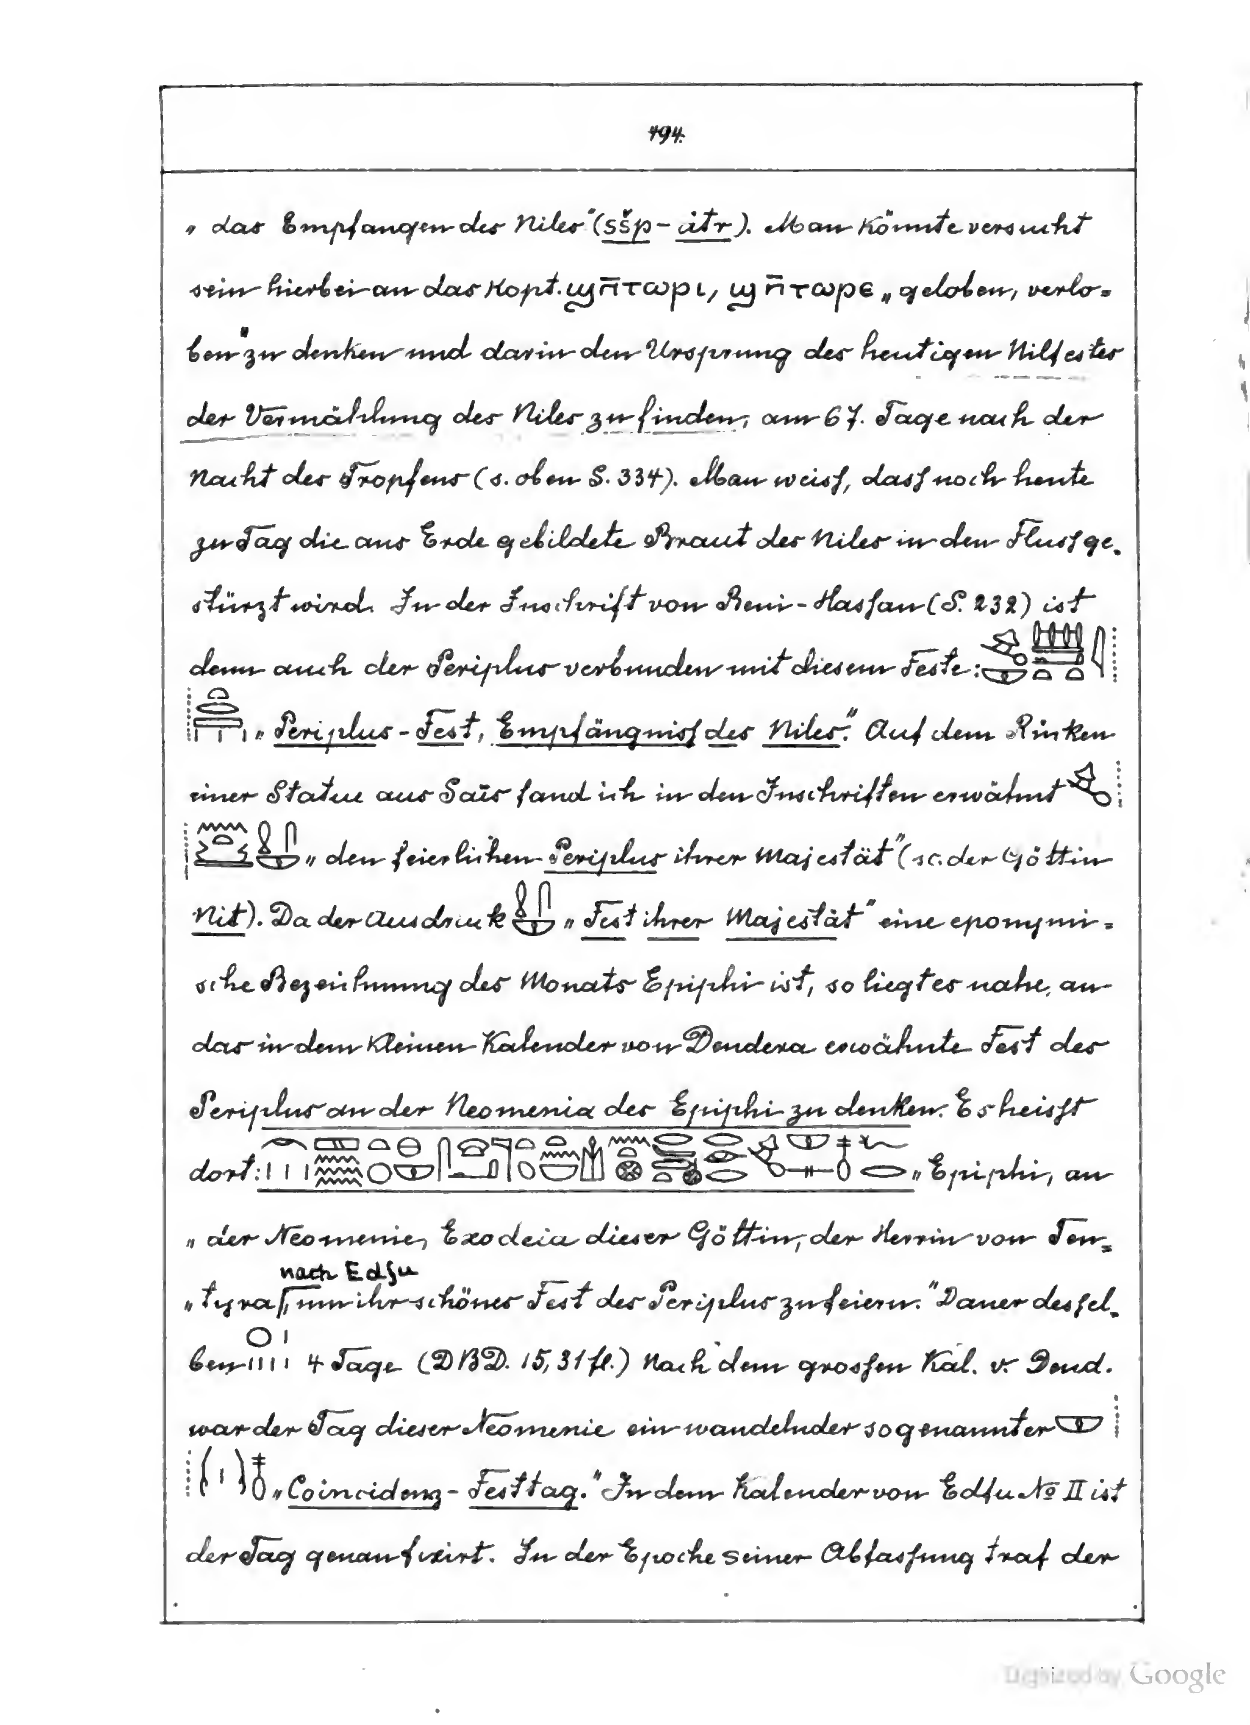 494.
„das Empfangen des Niles“ (sšp-itr). Man könnte versucht
sein hierbei an das kopt. ϣⲡ̄ⲧⲱⲣⲓ, ϣⲡ̄ⲧⲱⲣⲉ „geloben, verlo=
ben“ zu denken und darin den Ursprung des heutigen Nilfestes
der Vermählung des Niles zu finden, am 67. Tage nach der
Nacht des Tropfens (s. oben S. 334). Man weiss, dass noch heute
zu Tag die aus Erde gebildete Braut des Niles in den Fluss ge=
stürzt wird. In der Inschrift von Beni-Hassan (S. 232) ist
denn auch der Periplus verbunden mit diesem Feste:
„Periplus-Fest, Empfängniss des Niles“. Auf dem Rücken
einer Statue aus Saïs fand ich in den Inschriften erwähnt
„den feierlichen Periplus ihrer Majestät“ (sc. der Göttin
Nit). Da der Ausdruck „Fest ihrer Majestät“ eine eponymi=
sche Bezeichnung des Monats Epiphi ist, so liegt es nahe, an
das in dem kleinen Kalender von Dendera erwähnte Fest des
Periplus an der Neomenia des Epiphi zu denken. Es heisst
dort: „Epiphi, an
„der Neomenie, Exodeia dieser Göttin, der Herrin von Ten=
nach Edfu
„tyra, um ihr schönes Fest des Periplus zu feiern.“ Dauer dessel=
ben 4 Tage (DBD. 15, 31 fl.) Nach dem grossen Kal. v. Dend.
war der Tag dieser Neomenie ein wandelnder sogenannter
„Coincidenz-Festtag.“ In dem Kalender von Edfu № II ist
der Tag genau fixirt. In der Epoche seiner Abfassung traf der
Digitized by Google